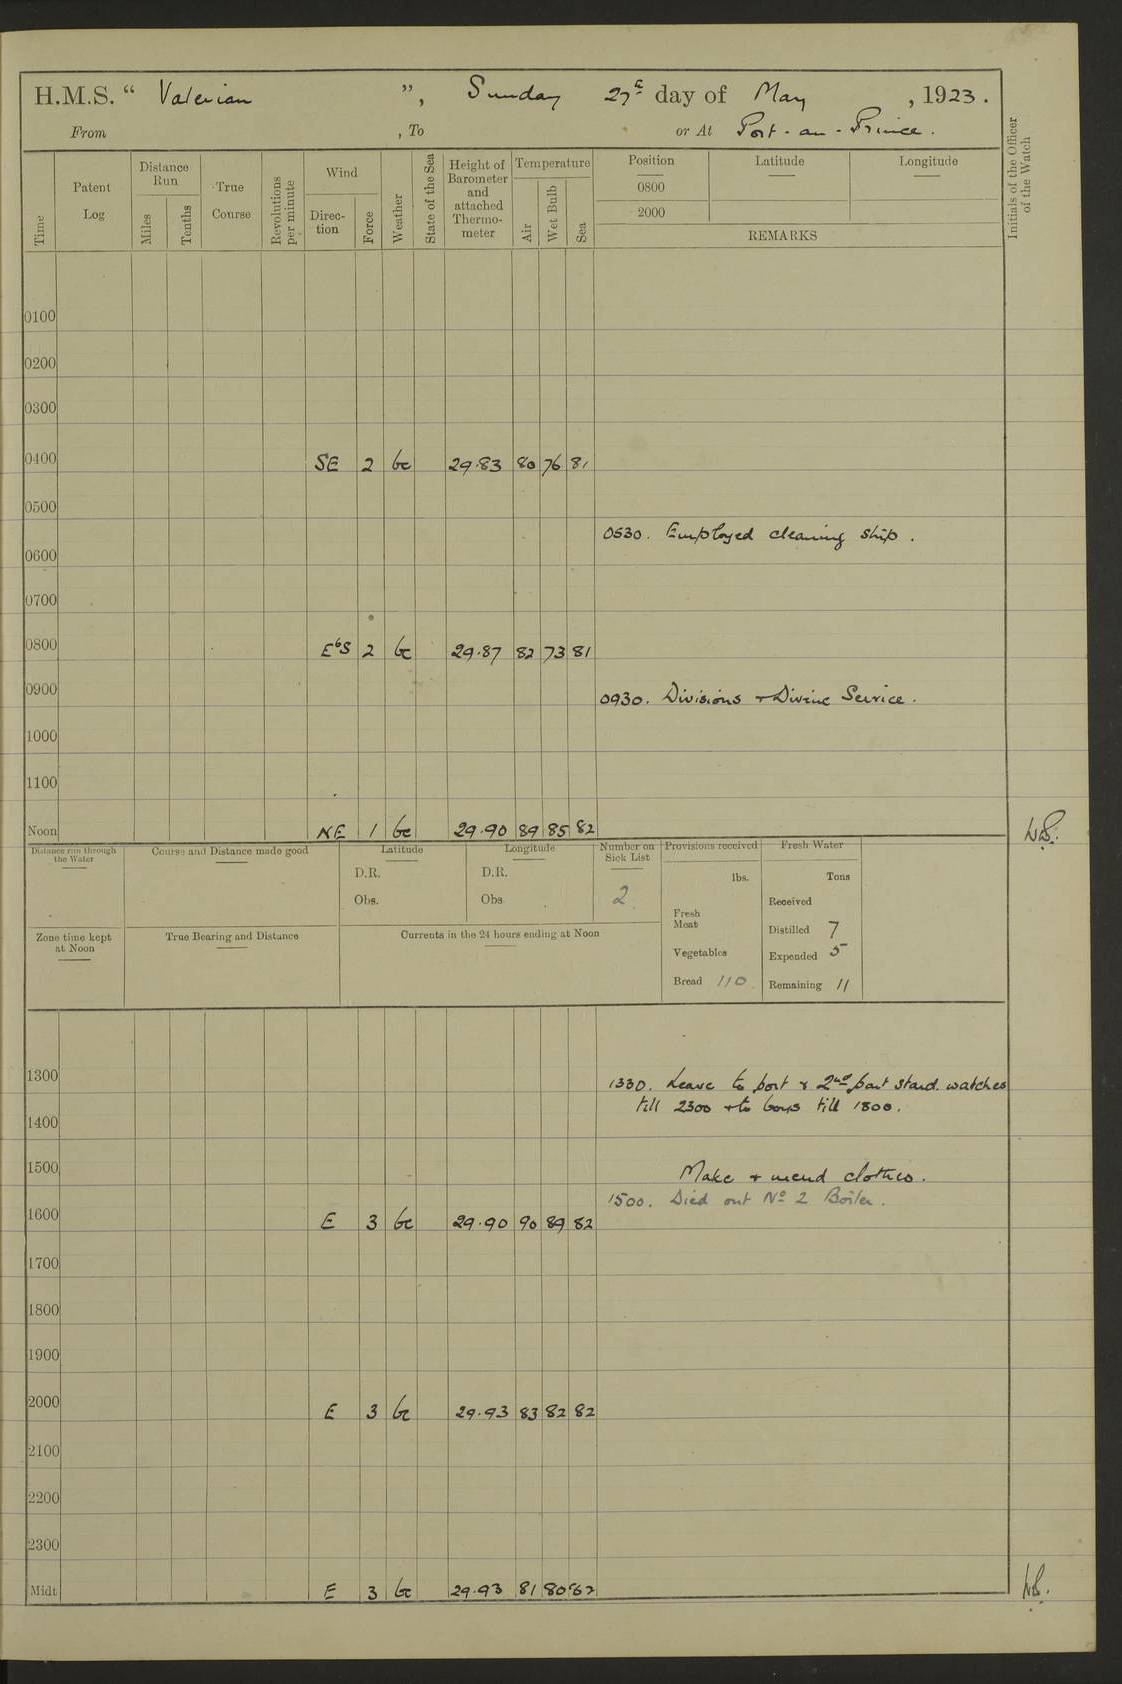 H.M.S. " Valerian ", Sunday 27th day of May, 1923.
From , To or At Port-au-Prince.
Time
Patent Log
Distance Run
Miles
Tenths
True Course
Revolutions per minute
Wind
Direction
Force
Weather
State of the Sea
Height of Barometer and attached Thermometer
Temperature
Air
Wet Bulb
Sea
Position Latitude Longitude
0800
2000
REMARKS
Initials of the Officer of the Watch
0100
0200
0300
0400 SE 2 bc 29.83 80 76 81
0500
0530. Employed cleaning ship.
0600
0700
0800 EbS 2 bc 29.87 82 73 81
0900
0930. Divisions + Divine Service.
1000
1100
Noon NE 1 bc 29.90 89 85 82
Distance run through the Water
Course and Distance made good
Latitude
D.R.
Obs.
Longitude
D.R.
Obs.
Number on Sick List
2
Provisions received
lbs.
Fresh Meat
Vegetables
Bread 110
Fresh Water
Tons
Received
Distilled 7
Expended 5
Remaining 11
Zone time kept at Noon
True Bearing and Distance
Currents in the 24 hours ending at Noon
1300
1330. Leave to port & 2nd part stard. watches
till 2300 + to boys till 1800.
1400
1500
Make + mend clothes.
1500. Died out No 2 Boiler.
1600 E 3 bc 29.90 90 89 82
1700
1800
1900
2000 E 3 bc 29.93 83 82 82
2100
2200
2300
Midt E 3 bc 29.93 81 80 82